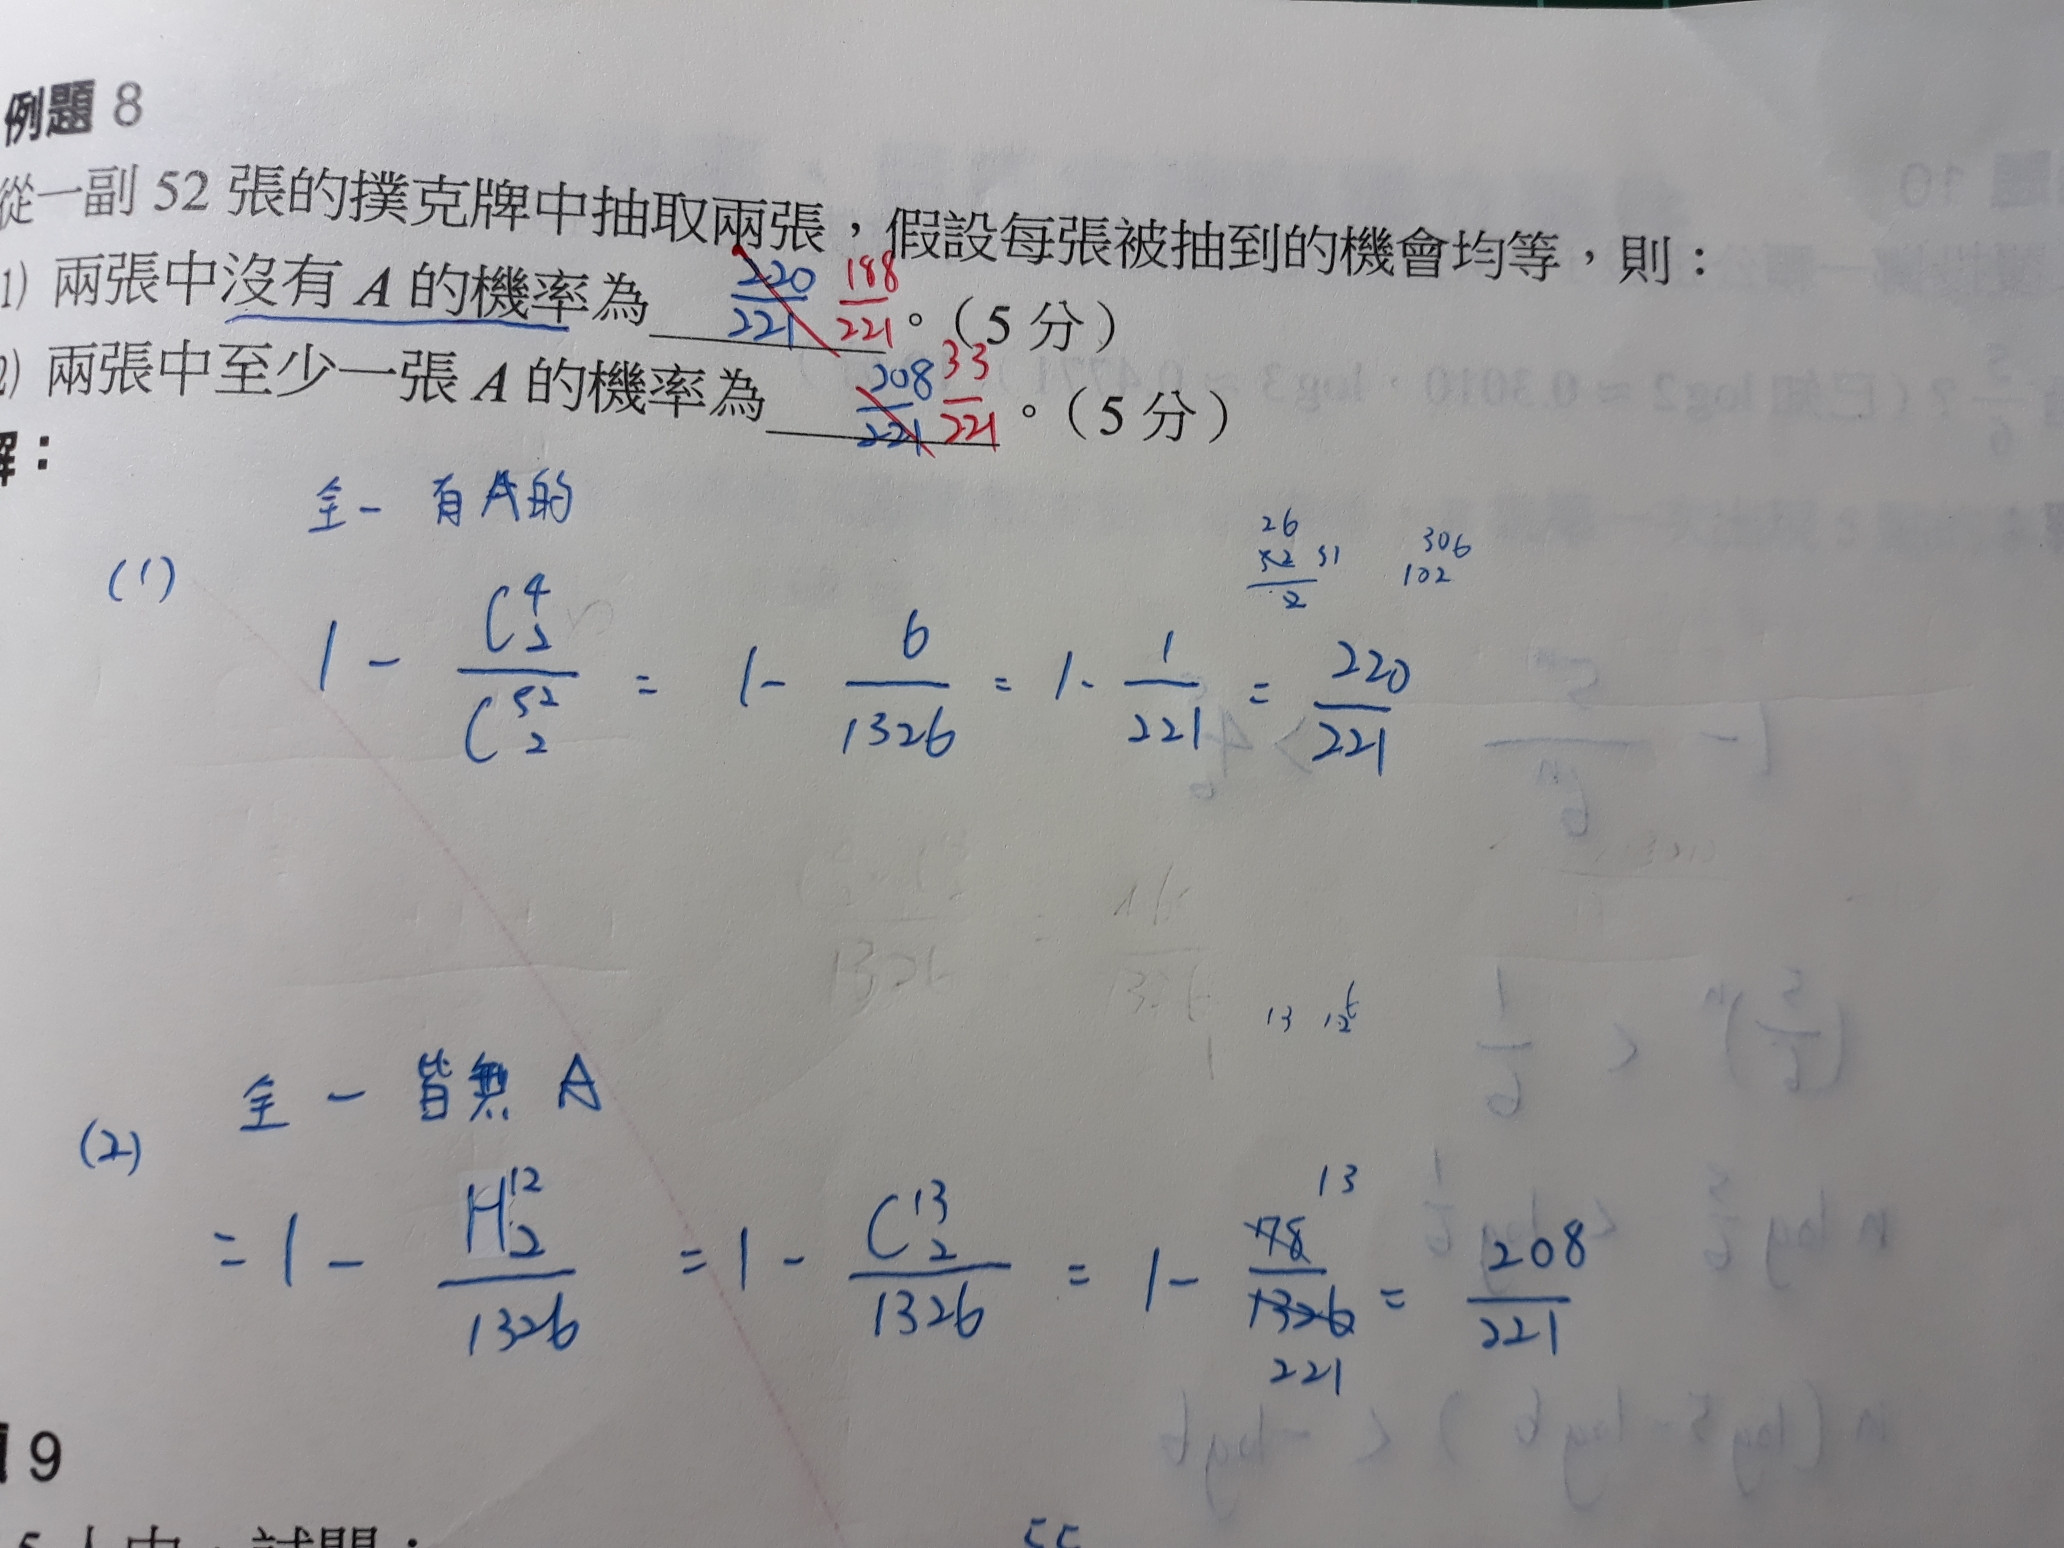 例題 8
從一副 52 張的撲克牌中抽取兩張，假設每張被抽到的機會均等，則：
1) 兩張中沒有 A 的機率為 220/221 188/221 。（5 分）
2) 兩張中至少一張 A 的機率為 208/221 33/221 。（5 分）
解：
全 - 有A的
26
52 51 / 2
306
102
(1) 1 - C⁴₂ / C⁵²₂ = 1 - 6/1326 = 1 - 1/221 = 220/221
13 12 6
全 - 皆無 A
(2) = 1 - H¹²₂ / 1326 = 1 - C¹³₂ / 1326 = 1 - 78/1326 = 208/221
13
221
9